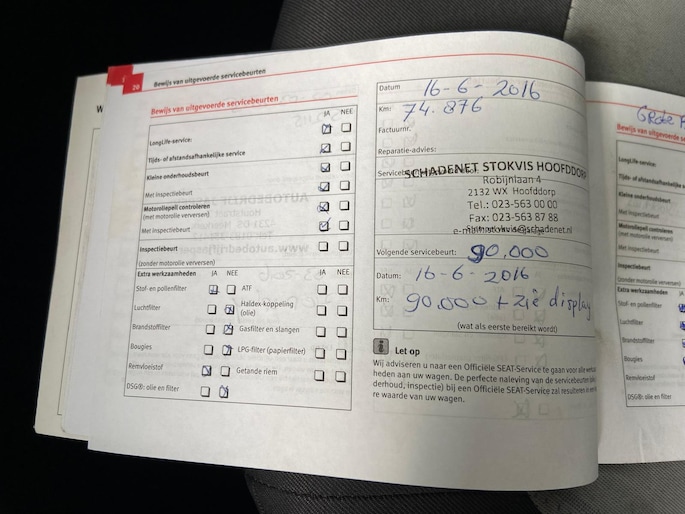 20
Bewijs van uitgevoerde servicebeurten
Bewijs van uitgevoerde servicebeurten
JA NEE
LongLife-service:
Tijds- of afstandsafhankelijke service
Kleine onderhoudsbeurt
Met inspectiebeurt
Motoroliepeil controleren
(met motorolie verversen)
Met inspectiebeurt
Inspectiebeurt
(zonder motorolie verversen)
Extra werkzaamheden JA NEE JA NEE
Stof- en pollenfilter ATF
Luchtfilter Haldex-koppeling
(olie)
Brandstoffilter Gasfilter en slangen
Bougies LPG-filter (papierfilter)
Remvloeistof Getande riem
DSG®: olie en filter
Datum 16-6-2016
Km: 74.876
Factuurnr.
Reparatie-advies:
SCHADENET STOKVIS HOOFDDORP
Robijnlaan 4
2132 WX Hoofddorp
Tel.: 023-563 00 00
Fax: 023-563 87 88
Volgende servicebeurt: 90.000
Datum: 16-6-2016
Km: 90.000 + zie display
(wat als eerste bereikt wordt)
Let op
Wij adviseren u naar een Officiële SEAT-Service te gaan voor alle
heden aan uw wagen. De perfecte naleving van de servicebeurten
derhoud, inspectie) bij een Officiële SEAT-Service zal resulteren in
re waarde van uw wagen.
Grote
Bewijs van uitgevoerde
LongLife-service:
Tijds- of afstandsafhankelijke
Kleine onderhoudsbeurt
Met inspectiebeurt
Motoroliepeil controleren
(met motorolie verversen)
Met inspectiebeurt
Inspectiebeurt
(zonder motorolie verversen)
Extra werkzaamheden
Stof- en pollenfilter
Luchtfilter
Brandstoffilter
Bougies
Remvloeistof
DSG®: olie en filter